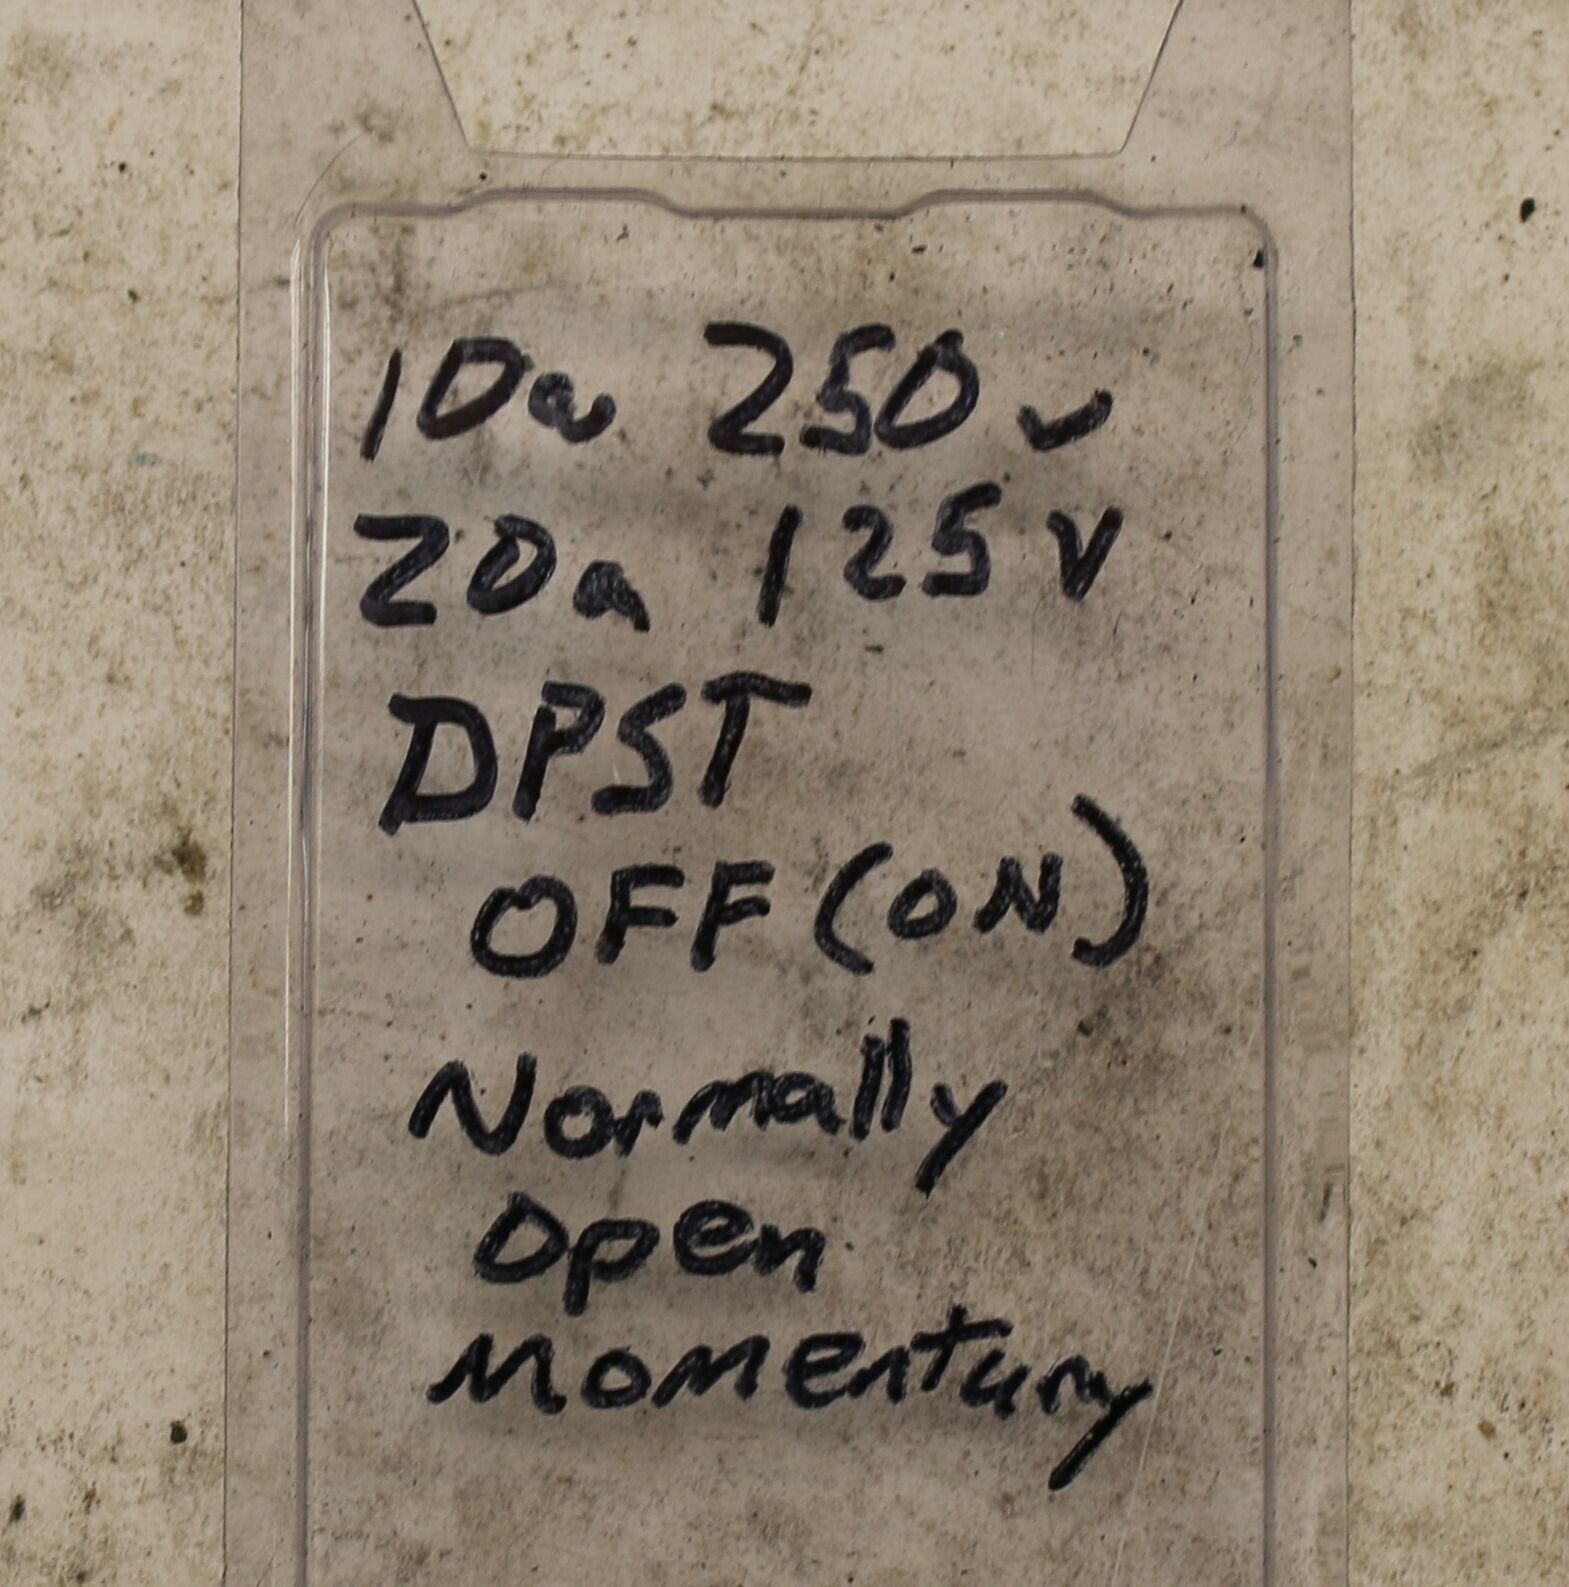 10a 250v
20a 125v
DPST
OFF (ON)
Normally
Open
Momentary